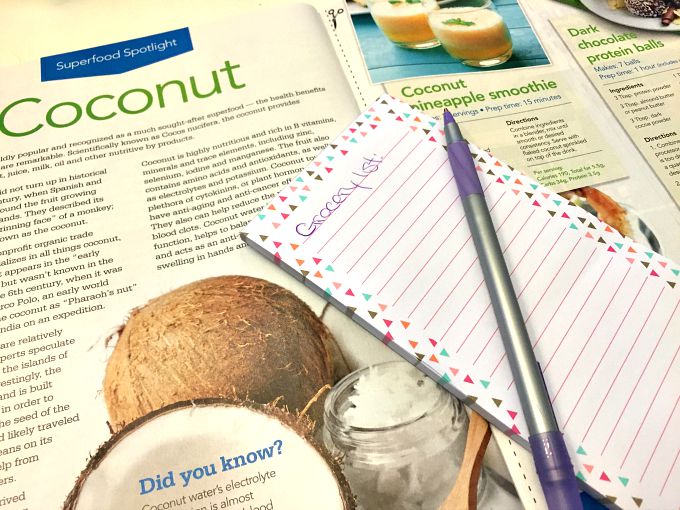 go
Superfood Spotlight
Coconut
ldly popular and recognized as a much sought-after superfood — the health benefits
are remarkable. Scientifically known as Cocos nucifera, the coconut provides
t, juice, milk, oil and other nutritive by products.
ld not turn up in historical
tury, when Spanish and
ound the fruit growing
ands. They described its
rinning face" of a monkey;
own as the coconut.
nprofit organic trade
ializes in all things coconut,
t appears in the "early
but wasn't known in the
e 6th century, when it was
rco Polo, an early world
e coconut as "Pharaoh's nut"
ndia on an expedition.
are relatively
perts speculate
the islands of
estingly, the
and is built
in order to
the seed of the
d likely traveled
eans on its
elp from
ers.
rived
Coconut is highly nutritious and rich in B vitamins,
minerals and trace elements, including zinc,
selenium, iodine and manganese. The fruit also
contains amino acids and antioxidants, as well
as electrolytes and potassium. Coconut
plethora of cytokinins, or plant hormo
have anti-aging and anti-cancer eff
They also can help reduce the r
blood clots. Coconut water
function, helps to balan
and acts as an anti-
swelling in hands an
Did you know?
Coconut water's electrolyte
is almost
blood
Coconut
pineapple smoothie
servings • Prep time: 15 minutes
Directions
Combine ingredients
in a blender, mix until
smooth or desired
consistency. Serve with
coconut sprinkled
on top of the drink.
Per serving:
Calories 190, Total fat 1.5g,
Carbs 34g, Protein 3.5g
Dark
chocolate
protein balls
Makes: 7 balls
Prep time: 1 hour (includes
Ingredients
3 Tbsp. protein powder
3 Tbsp. almond butter
or peanut butter
Tbsp. dark
cocoa powder
Directions
1. Combine
Grocery list: